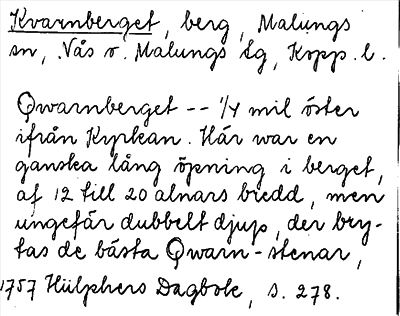 Kvarnberget, berg, Malungs
sn, Nås o. Malungs tg, Kopp. l.
Qwarnberget -- 1/4 mil öster
ifrån Kyrkan. Här war en
ganska lång öpning i berget,
af 12 till 20 alnars bredd, men
ungefär dubbelt djup, der bry-
tas de bästa Qwarn-stenar,
1757 Hülphers Dagbok, s. 278.